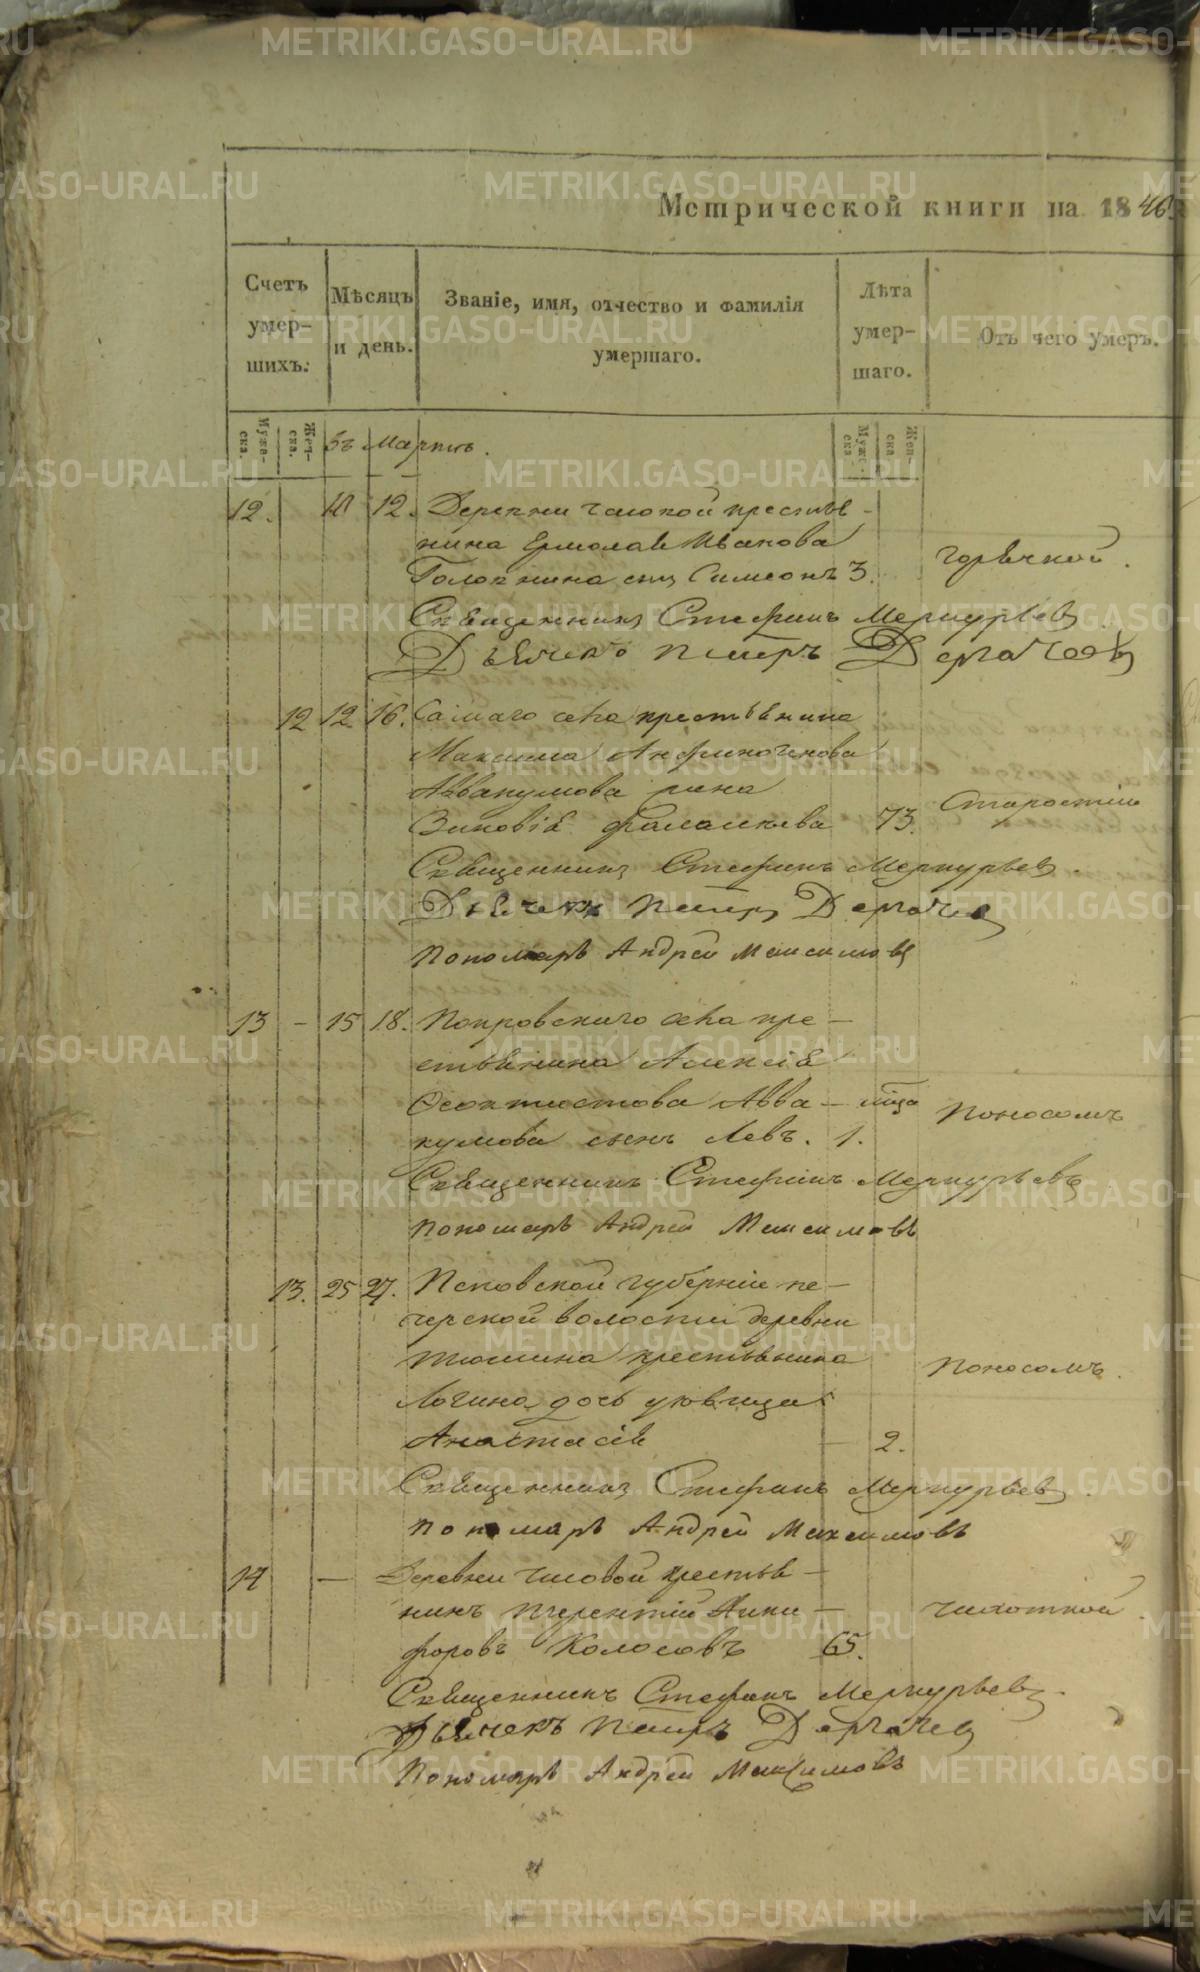 Метрической книги на 1846
Счетъ умер-шихъ.
Мѣсяцъ и день.
Званіе, имя, отчество и фамилія умершаго.
Лѣта умер-шаго.
Отъ чего умеръ.
Муже-ска.
Жен-ска.
Въ Мартѣ.
Муже-ска
Жен-ска
12. 10 12. Деревни Часовой крестья-
нина Ермолая Иванова
сынъ Симеонъ 3. горячкой.
Священникъ Стефанъ Меркурьевъ
Дьячекъ Петръ Дергачевъ
12 12 16. Самаго села крестьянина
Максима
Аввакумова жена
Зиновія 73. Старостію
Священникъ Стефанъ Меркурьевъ
Дьячекъ Петръ Дергачевъ
Пономарь Андрей Максимовъ
13 – 15 18. Покровскаго села кре-
стьянина Алексія
Ѳеоктистова Авва- мѣсяца
кумова сынъ Левъ. 1. Поносомъ
Священникъ Стефанъ Меркурьевъ
Пономарь Андрей Максимовъ
13. 25 27. Псковской губерніи пе-
черской волости деревни
крестьянина
Логина дочь дѣвица
Анастасія 2. Поносомъ.
Священникъ Стефанъ Меркурьевъ
Пономарь Андрей Максимовъ
14 — Деревни Часовой крестья-
нинъ Терентій Ники-
форовъ Колосовъ 65. чахоткой.
Священникъ Стефанъ Меркурьевъ.
Дьячекъ Петръ Дергачевъ
Пономарь Андрей Максимовъ
METRIKI.GASO-URAL.RU